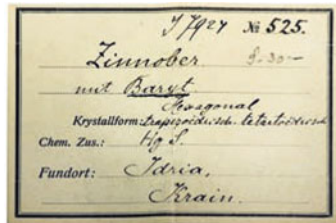 № 525.
Zinnober
mit Baryt
Hexagonal
Krystallform: trapezoëdrisch-tetartoëdrisch
Chem. Zus.: Hg S.
Fundort: Idria,
Krain.